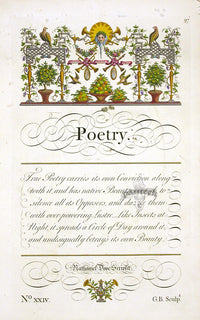 97
Poetry.
True Poetry carries its own Conviction along
with it, and has native Beauty to
silence all its Opposers, and them
with over powering Lustre. Like Insects at
Night, it spreads a Circle of Day around it,
and undesignedly betrays its own Beauty.
Nathaniel Dove Scripsit.
No XXIV.
G.B. Sculp.